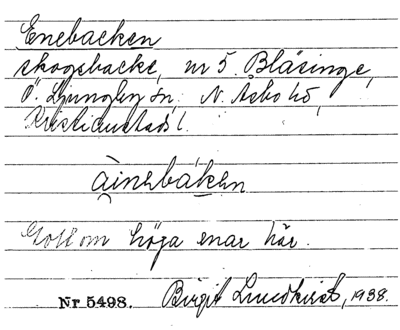 Enebacken
skogsbacke, nr 5 Blåsinge,
Ö. Ljungby sn, N. Åsbo hd,
Kristianstads l.
àinəbákən
Gott om höga enar här.
Nr 5498. Birgit Lundkvist, 1938.